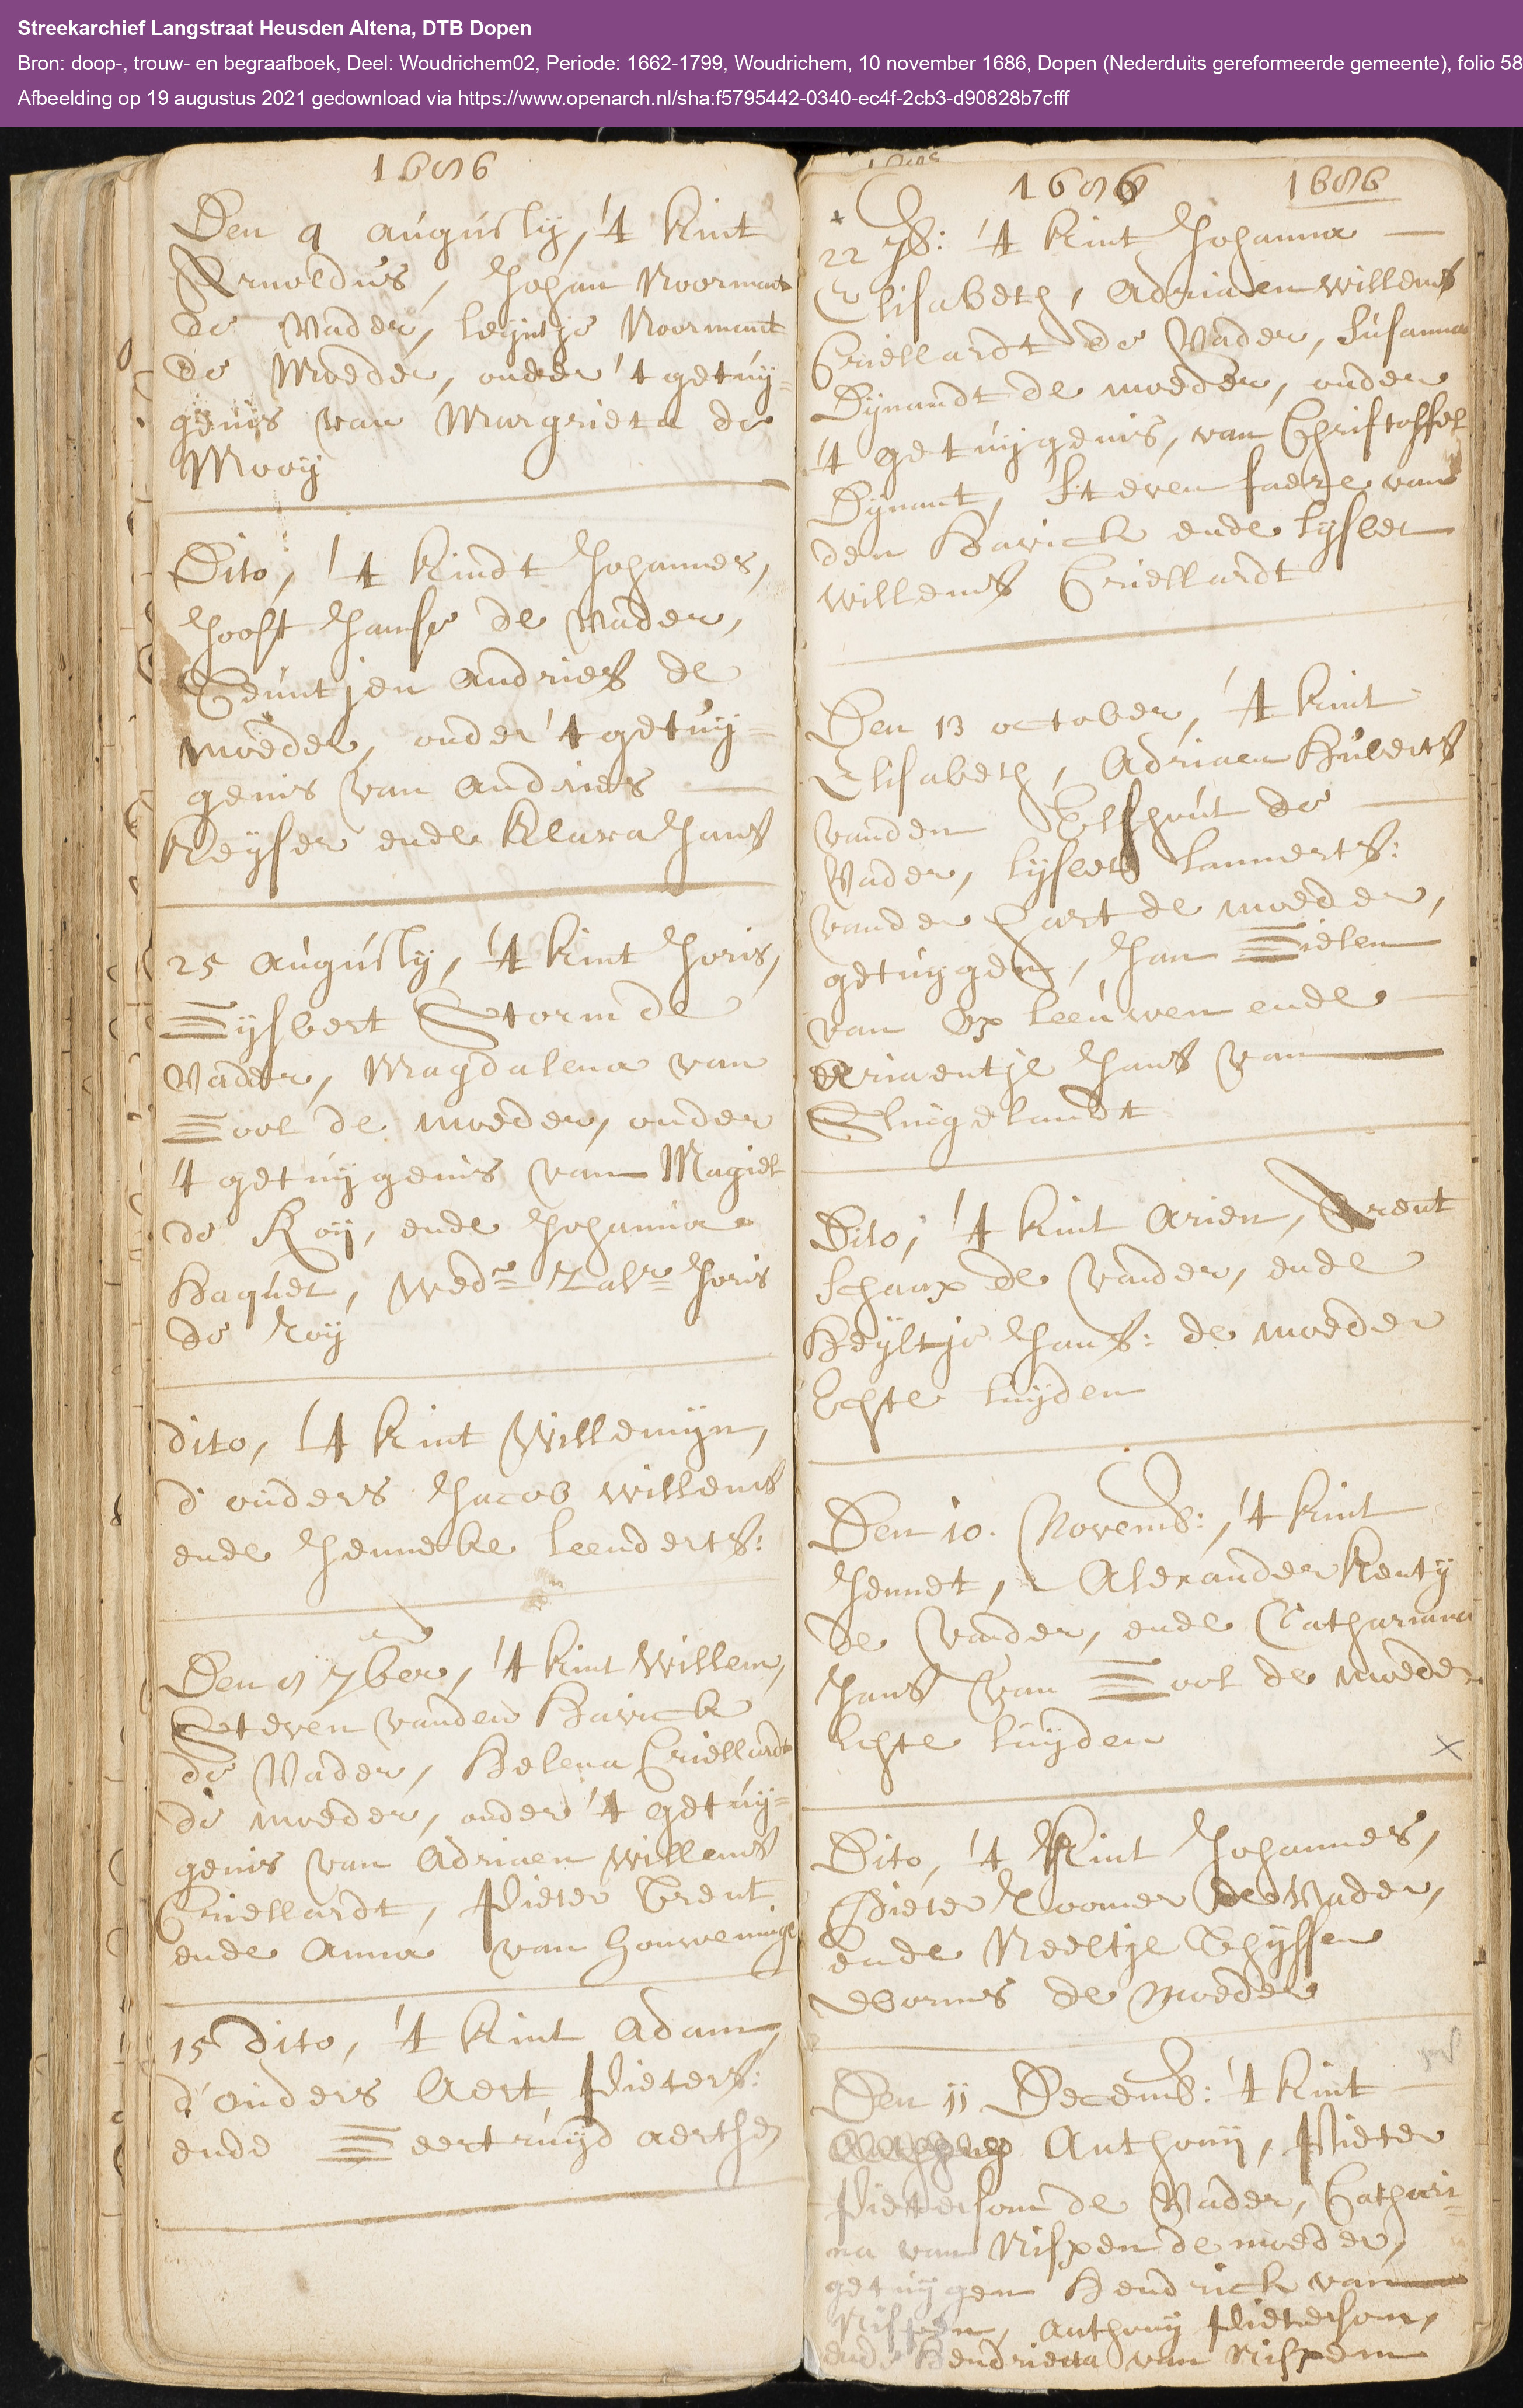 Streekarchief Langstraat Heusden Altena, DTB Dopen
Bron: doop-, trouw- en begraafboek, Deel: Woudrichem02, Periode: 1662-1799, Woudrichem, 10 november 1686, Dopen (Nederduits gereformeerde gemeente), folio 58
Afbeelding op 19 augustus 2021 gedownload via https://www.openarch.nl/sha:f5795442-0340-ec4f-2cb3-d90828b7cfff
1686
Den 9 augusty, 't kint
Arnoldus, Johan Noormant
de Vader, leijntje Noormant
de Moeder, onder 't getuy=
genis van Margrieta de
Mooij
Dito, 't kindt Johannes,
Joost Janse de Vader,
Teuntjen Andries de
moeder, onder 't getuy=
genis van Andries
Keyser ende Klara Jans
25 Augusty, 't kint Joris,
Gijsbert Storm de
Vader, Magdalena van
Gool de moeder, onder
't getuygenis van Magiel
de Roy, ende Johanna
Haquet, Wedr Zalr Joris
de Roy
dito, 't kint Willemijn,
d' ouders Jacob Willems
ende Jenneke Leenderts:
Den 8 7ber, 't kint Willem,
Steven vanden Havick
de Vader, Helena Criellardt
de moeder, onder 't getuy=
genis van Adriaen Willems
Criellardt, Pieter Brent
ende Anna van Houweninge
15 Dito, 't kint Adam,
d' ouders Aert Pieters:
ende Geertruyd Aertsen
1686 1686
22 7b: 't kint Johanna
Elisabeth, Adriaen Willems
Criellardt de Vader, Susanna
Dynandt de moeder, onder
't getuygenis, van Christoffel
Dynant, Steven van
den Havick ende Lysbet
Willems Criellardt
Den 13 october, 't kint
Elisabeth, Adriaen Huberts
vanden Elshout de
Vader, Lysbet Lannerts:
vander de moeder,
getuygen, Jan Gielen
van Op Leeuwen ende
Ariaentje Jans van
Slingelandt
Dito, 't kint Arien, Arent
Schaap de Vaider, ende
Heyltje Jans: de moeder
Echte luyden
Den 10. Novemb: 't kint
Jennet, Alexander Kenty
de Vaider, ende Catharina
Jans van Gool de moeder
Echte luyden
Dito, 't Kint Johannes,
Pieter Roomer de Vader,
ende Neeltje Thyssen
Worms de Moeder
Den 11 Decemb: 't kint
Anthony, Pieter
Pietersom de Vader, Cathari=
na van Nispen de moeder,
getuygen Hendrick van
Nispen, Anthony Pietersom,
ende Hendriena van Nispen